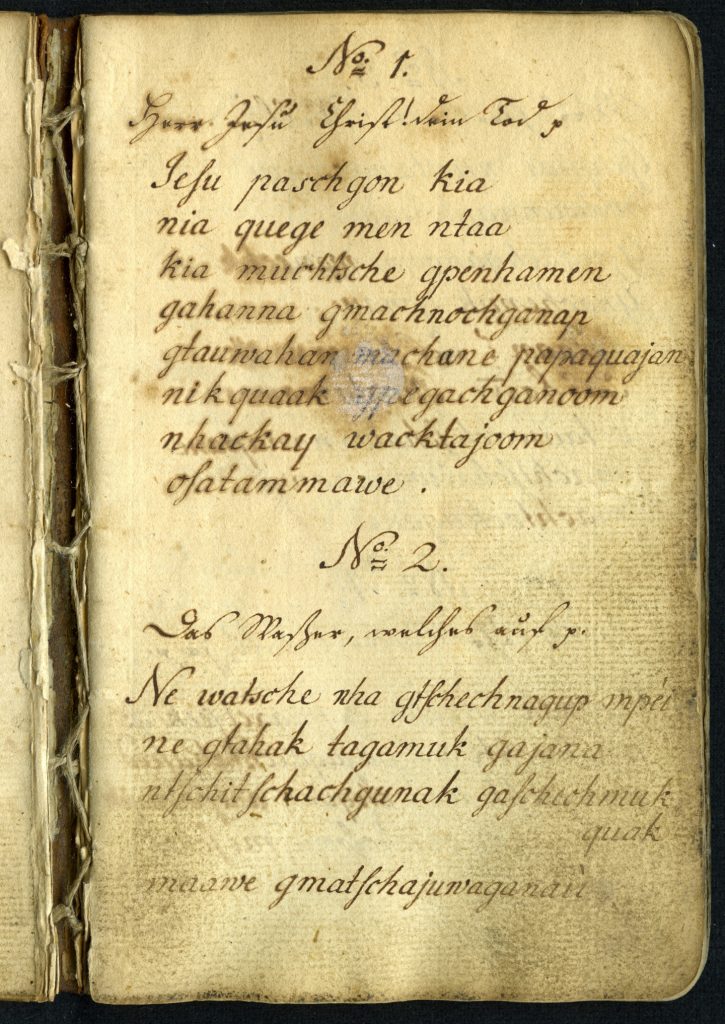 No: 1.
Herr Jesu Christ! dein Tod p
Jesu paschgon kia
nia quege men ntaa
kia muchtsche gpenhamen
gahanna gmachnochganap
gtauwahan machane papaquajan
nik quaak gachganoom
nhackay wacktajoom
osatammawe.
No: 2.
Das Waßer, welches auf p.
Ne watsche nha gtſchechnagup mpéi
ne gtahak tagamuk gajana
ntſchitſchachgunak gaſchechmuk
quak
maawe gmatſchajuwaganau